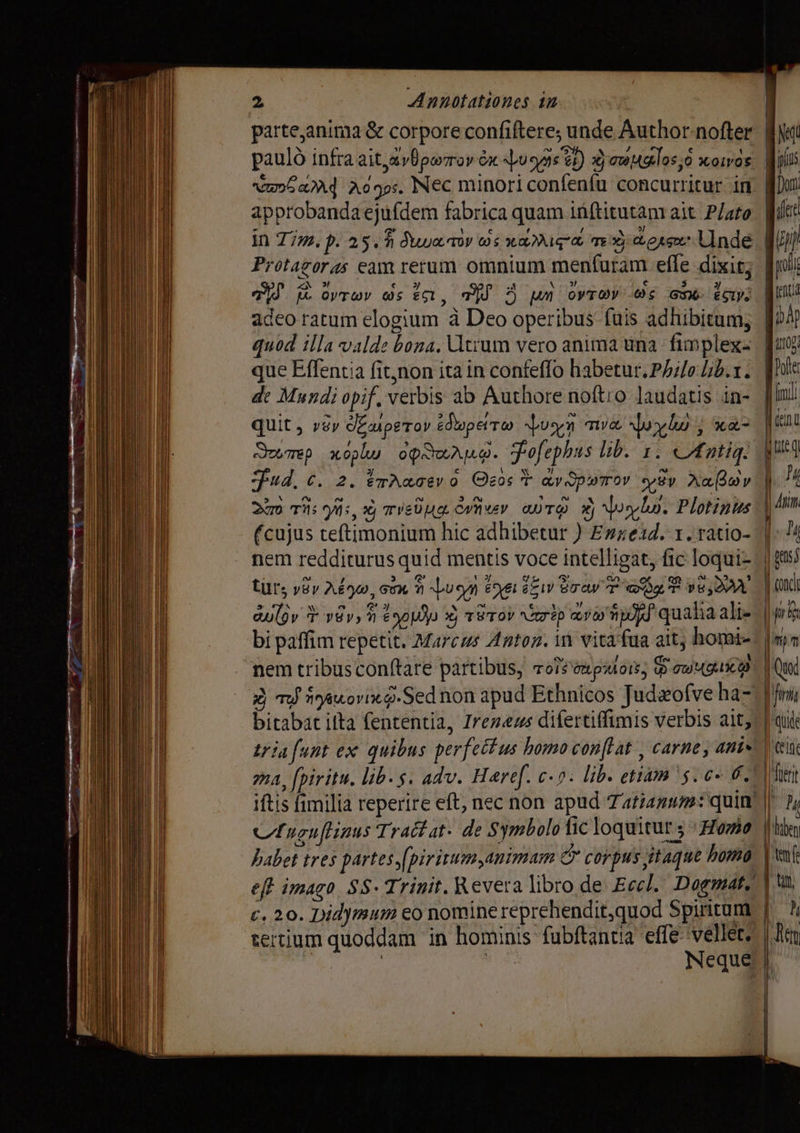 2 Annotationes in
parte,anima & corpore conſiſtere; unde Author noſter
paulò infra ait,ἄνθρωπον ἐκ ψυχῆς εἶ) κὶ σώματος,ὁ κοινὸς
λόγος. Nec minori conſenſu concurritur in
approbanda ejuſdem fabrica quam inſtitutam ait Plato
in Tim. p. 25. ἢ δυνατὸν ὡς κάλλιςα Unde
Protagoras eam rerum omnium menſuram eſſe dixit;
ὄντων ὡς ἔςι, μὴ ὄντων ὡς ἔςιν;
adeo ratum elogium à Deo operibus ſuis adhibitum,
quod illa valde bona. Utrum vero anima una ſimplex-
que Eſſentia ſit,non ita in confeſſo habetur. Philo lib. 1.
de Mundi opif. verbis ab Authore noſtro laudatis in-
quit, νῦν ἐξαίρετον ἐδωρεῖτο ψυχῇ τινα ψυχὴν, κα-
θάπερ κόρην ὀφθαλμῷ. Joſephus lib. 1. Antiq.
Jud. c. 2. ἔπλασεν ὁ Θεὸς τ ἄνθρωπον χοῦν λαβὼν
ἀπὸ τῆς γῆς, κὶ πνεῦμα ἐνῆκεν αὐτῷ κὶ ψυχήν. Plotinus
(cujus teſtimonium hic adhibetur ) Ennead. 1. ratio-
nem redditurus quid mentis voce intelligat, ſic loqui-
tur, νῦν λέγω, ἡ ψυχὴ ἔχει ἕξιν
τ νῦν, ἢ ἔχομεν κὶ τοῦτον ὑπὲρ ἄνω ἡμῶν qualia ali-
bi paſſim repetit. Marcus Anton. in vita ſua ait, homi-
nem tribus conſtare partibus, τοῖς σαρκίοις, σωματικῷ
κὶ ἡγεμονικῷ. Sed non apud Ethnicos Judæoſve ha-
bitabat iſta ſententia, Irenæus diſertiſſimis verbis ait,
tria ſunt ex quibus perfectus homo conſtat, carne, ani-
ma, ſpiritu. lib. 5. adv. Hæreſ. c. 9. lib. etiam 5. c. 6.
iſtis ſimilia reperire eſt, nec non apud Tatianum: quin
Auguſtinus Tractat. de Symbolo ſic loquitur; Homo
habet tres partes,ſpiritum,animam & corpus,itaque homo
eſt imago SS. Trinit. Revera libro de Eccl. Dogmat.
c. 20. Didymum eo nomine reprehendit,quod Spiritum
tertium quoddam in hominis ſubſtantia eſſe vellet.
Neque